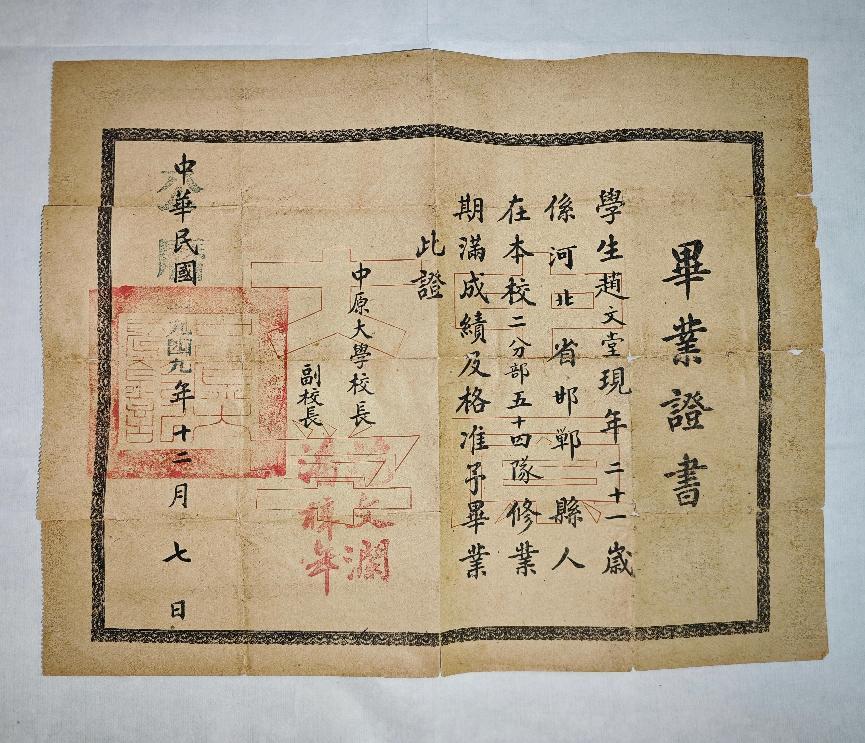 畢業證書
學生趙文堂現年二十一歲
係河北省邯鄲縣人
在本校二分部五十四隊修業
期滿成績及格准予畢業
此證
中原大學校長
文瀾
副校長
年
中華民國一九四九年十二月七日
公曆